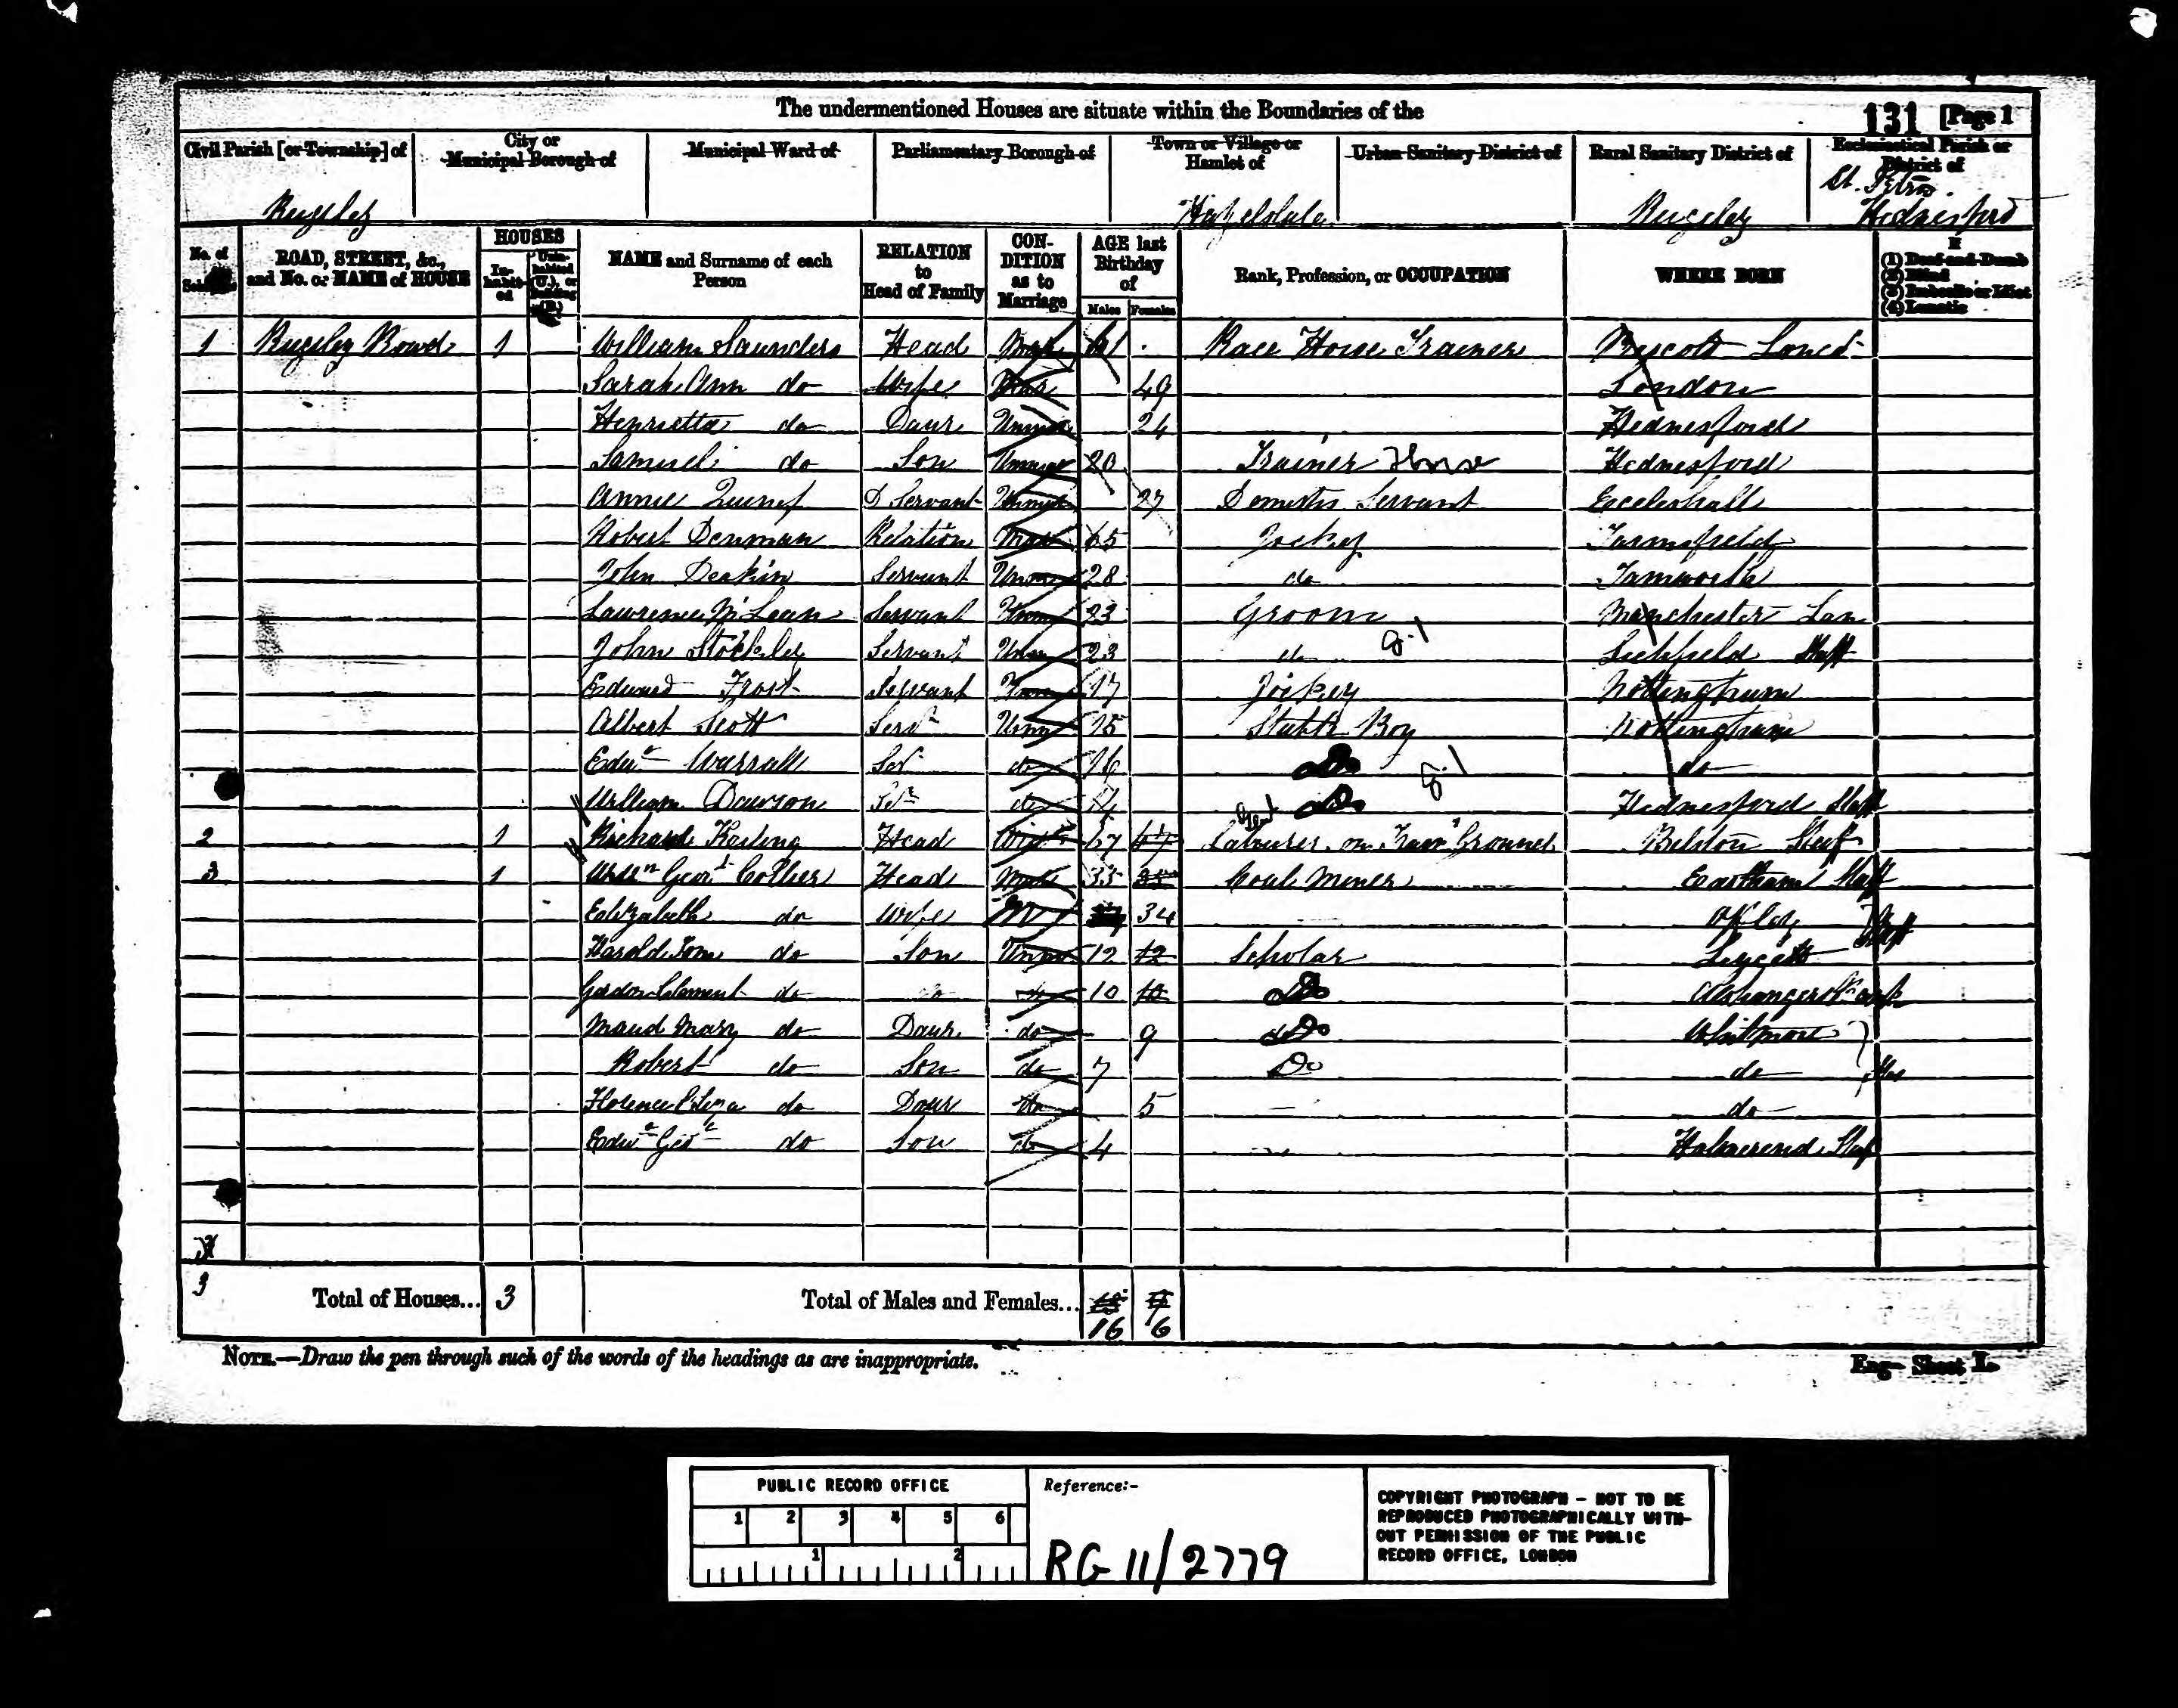 The undermentioned Houses are situate within the Boundaries of the
131 [Page 1
Civil Parish [or Township] of
City or Municipal Borough of
Municipal Ward of
Parliamentary Borough of
Town or Village or Hamlet of
Urban Sanitary District of
Rural Sanitary District of
Ecclesiastical Parish or District of
Rugeley
Rugeley
St. Peters Hednesford
No. of Schedule
ROAD, STREET, &c., and No. or NAME of HOUSE
HOUSES
In-habit-ed
Unin-habited (U.), or Building (B.)
NAME and Surname of each Person
RELATION to Head of Family
CON-DITION as to Marriage
AGE last Birthday of
Males Females
Rank, Profession, or OCCUPATION
WHERE BORN
If
(1) Deaf-and-Dumb
(2) Blind
(3) Imbecile or Idiot
(4) Lunatic
1 Rugeley Road 1 William Saunders Head Mar 61 Race Horse Trainer
Sarah Ann do Wife Mar 49 London
Henrietta do Daur Unmar 24 Hednesford
Samuel do Son Unmar 20 Trainer Horse Hednesford
Annie D Servant Unmar 27 Domestic Servant Eccleshall
Robert Denman Relation Mar 65 Jockey
John Deakin Servant Unmar 28 do Tamworth
Lawrence McLean Servant Unm 23 Groom Manchester Lan
John Stockley Servant Unm 23 do Lichfield Staff
Edward Frost Servant Unm 17 Jockey Nottingham
Albert Scott Servt Unm 15 Stable Boy Nottingham
Edwd Warrall Ser do 16 Do do
William Dawson Sr do Do Hednesford Staff
2 1 Richard Keeling Head Widr 67 67 Labourer on Train Ground Bilston Staf
3 1 Willm Geor Collier Head Mar 33 33 Coal Miner Staff
Elizabeth do Wife M 34
Harold Tom do Son Unm 12 12 Scholar
Gordon Clement do do do 10 10 Do
Maud Mary do Daur do 9 Do Whitmore
Robert do Son do 7 Do do
Florence Eliza do Daur do 5 do
Edwd Geoe do Son do 4 Halmerend Staf
3 Total of Houses... 3 Total of Males and Females... 16 6
NOTE.—Draw the pen through such of the words of the headings as are inappropriate.
Eng—Sheet I.
PUBLIC RECORD OFFICE
1 2 3 4 5 6
1 2
Reference:-
RG 11/2779
COPYRIGHT PHOTOGRAPH - NOT TO BE
REPRODUCED PHOTOGRAPHICALLY WITH-
OUT PERMISSION OF THE PUBLIC
RECORD OFFICE, LONDON